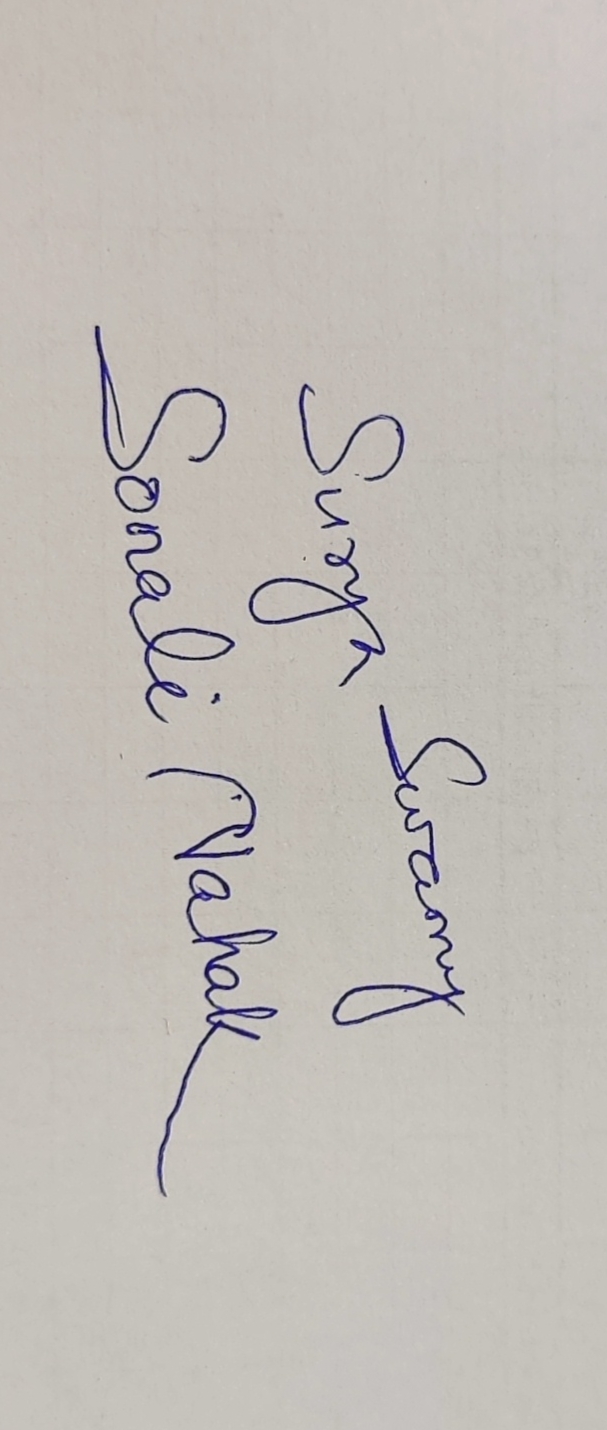 Surya Swamy
Sonali Nahak